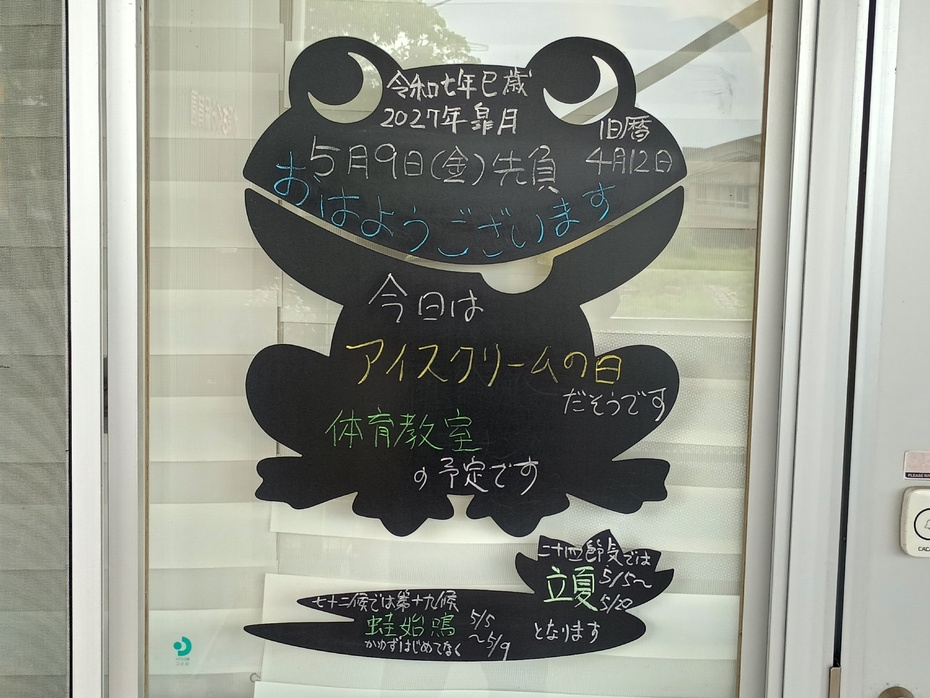 令和七年巳歳
2027年皐月
旧暦
4月12日
5月9日(金)先負
おはようございます
今日は
アイスクリームの日
だそうです
体育教室
の予定です
二十四節気では
立夏 5/5～
5/20
となります
七十二候では第十九候
蛙始鳴 5/5
～5/9
かわずはじめてなく